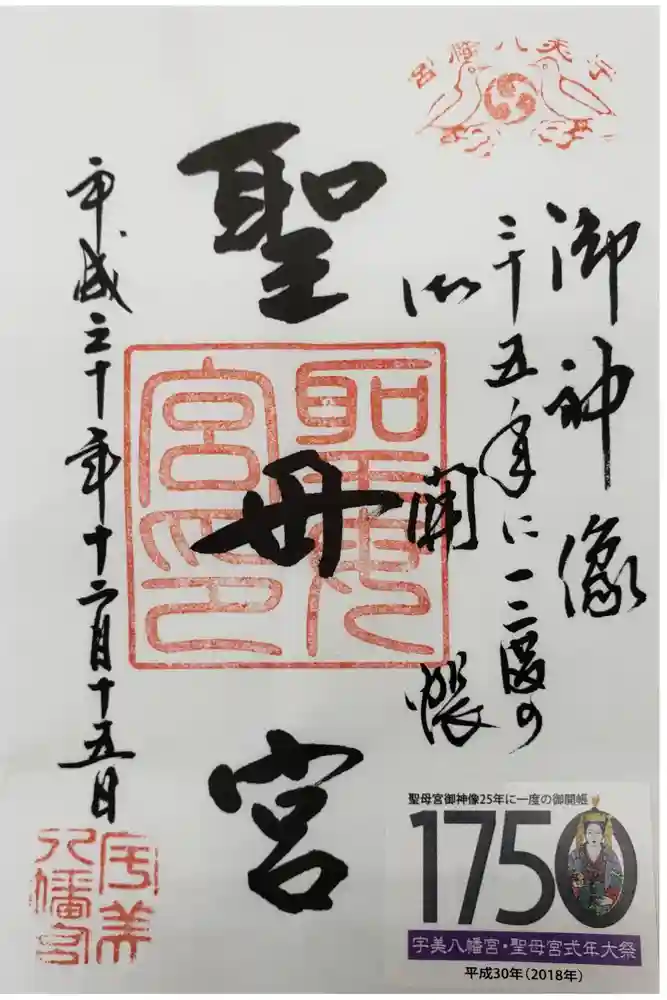 宇美八幡宮
御神像
二十五年に一度の
御開帳
聖母宮
聖母宮印
平成三十年十二月十五日
宇美八幡宮
聖母宮御神像25年に一度の御開帳
1750
宇美八幡宮・聖母宮式年大祭
平成30年(2018年)